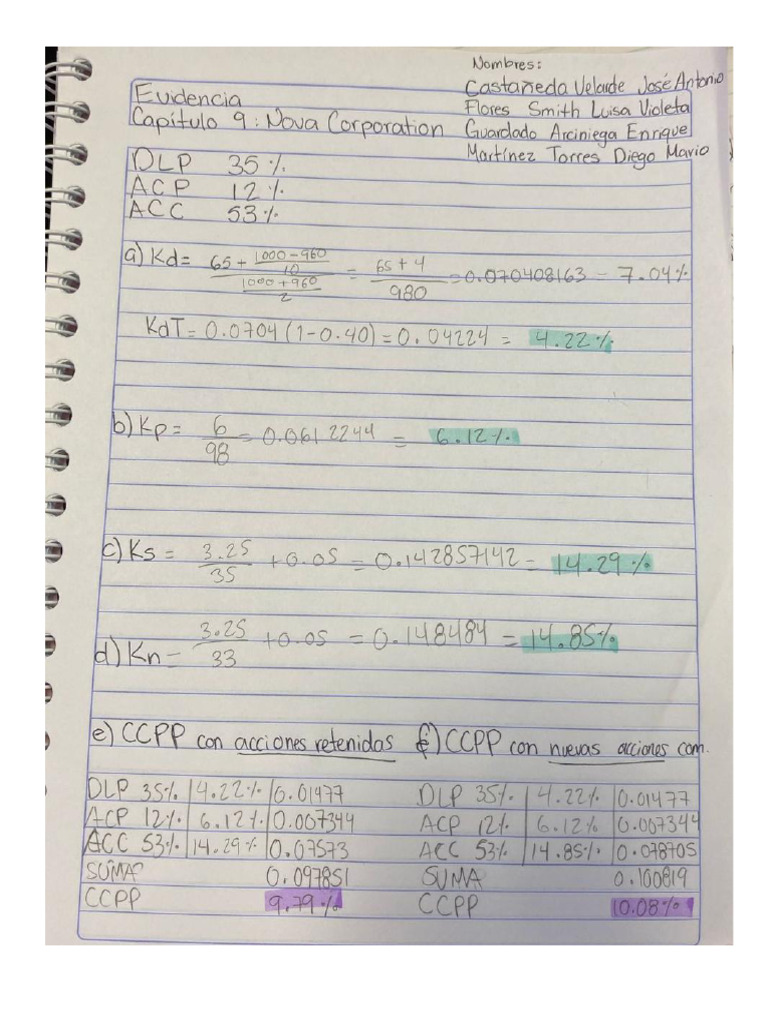 Nombres:
Castañeda Velarde José Antonio
Flores Smith Luisa Violeta
Guardado Arciniega Enrique
Martínez Torres Diego Mario
Evidencia
Capítulo 9: Nova Corporation
DLP 35%
ACP 12%
ACC 53%
a) Kd = (65 + (1000-960)/10) / ((1000+960)/2) = (65+4)/980 = 0.070408163 = 7.04%
KdT = 0.0704 (1-0.40) = 0.04224 = 4.22%
b) Kp = 6/98 = 0.0612244 = 6.12%
c) Ks = 3.25/35 + 0.05 = 0.142857142 = 14.29%
d) Kn = 3.25/33 + 0.05 = 0.148484 = 14.85%
e) CCPP con acciones retenidas
DLP 35% 4.22% 0.01477
ACP 12% 6.12% 0.007344
ACC 53% 14.29% 0.07573
SUMA 0.097851
CCPP 9.79%
f) CCPP con nuevas acciones com.
DLP 35% 4.22% 0.01477
ACP 12% 6.12% 0.007344
ACC 53% 14.85% 0.078705
SUMA 0.100819
CCPP 10.08%